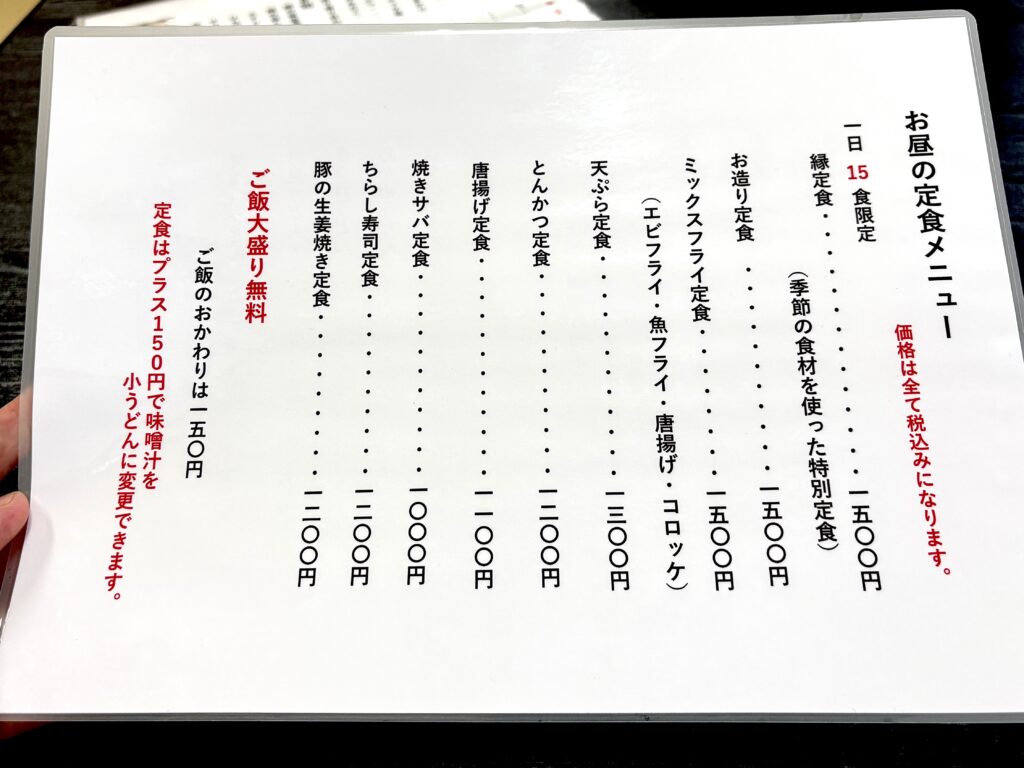 お昼の定食メニュー
価格は全て税込みになります。
一日 15 食限定
縁定食・・・・・・・・・・・・一五〇〇円
（季節の食材を使った特別定食）
お造り定食 ・・・・・・・・・・一五〇〇円
ミックスフライ定食・・・・・・・・一五〇〇円
（エビフライ・魚フライ・唐揚げ・コロッケ）
天ぷら定食・・・・・・・・・・・一三〇〇円
とんかつ定食・・・・・・・・・・・一二〇〇円
唐揚げ定食・・・・・・・・・・・一一〇〇円
焼きサバ定食・・・・・・・・・・・一〇〇〇円
ちらし寿司定食・・・・・・・・・・一二〇〇円
豚の生姜焼き定食・・・・・・・・・一二〇〇円
ご飯大盛り無料
ご飯のおかわりは一五〇円
定食はプラス150円で味噌汁を
小うどんに変更できます。